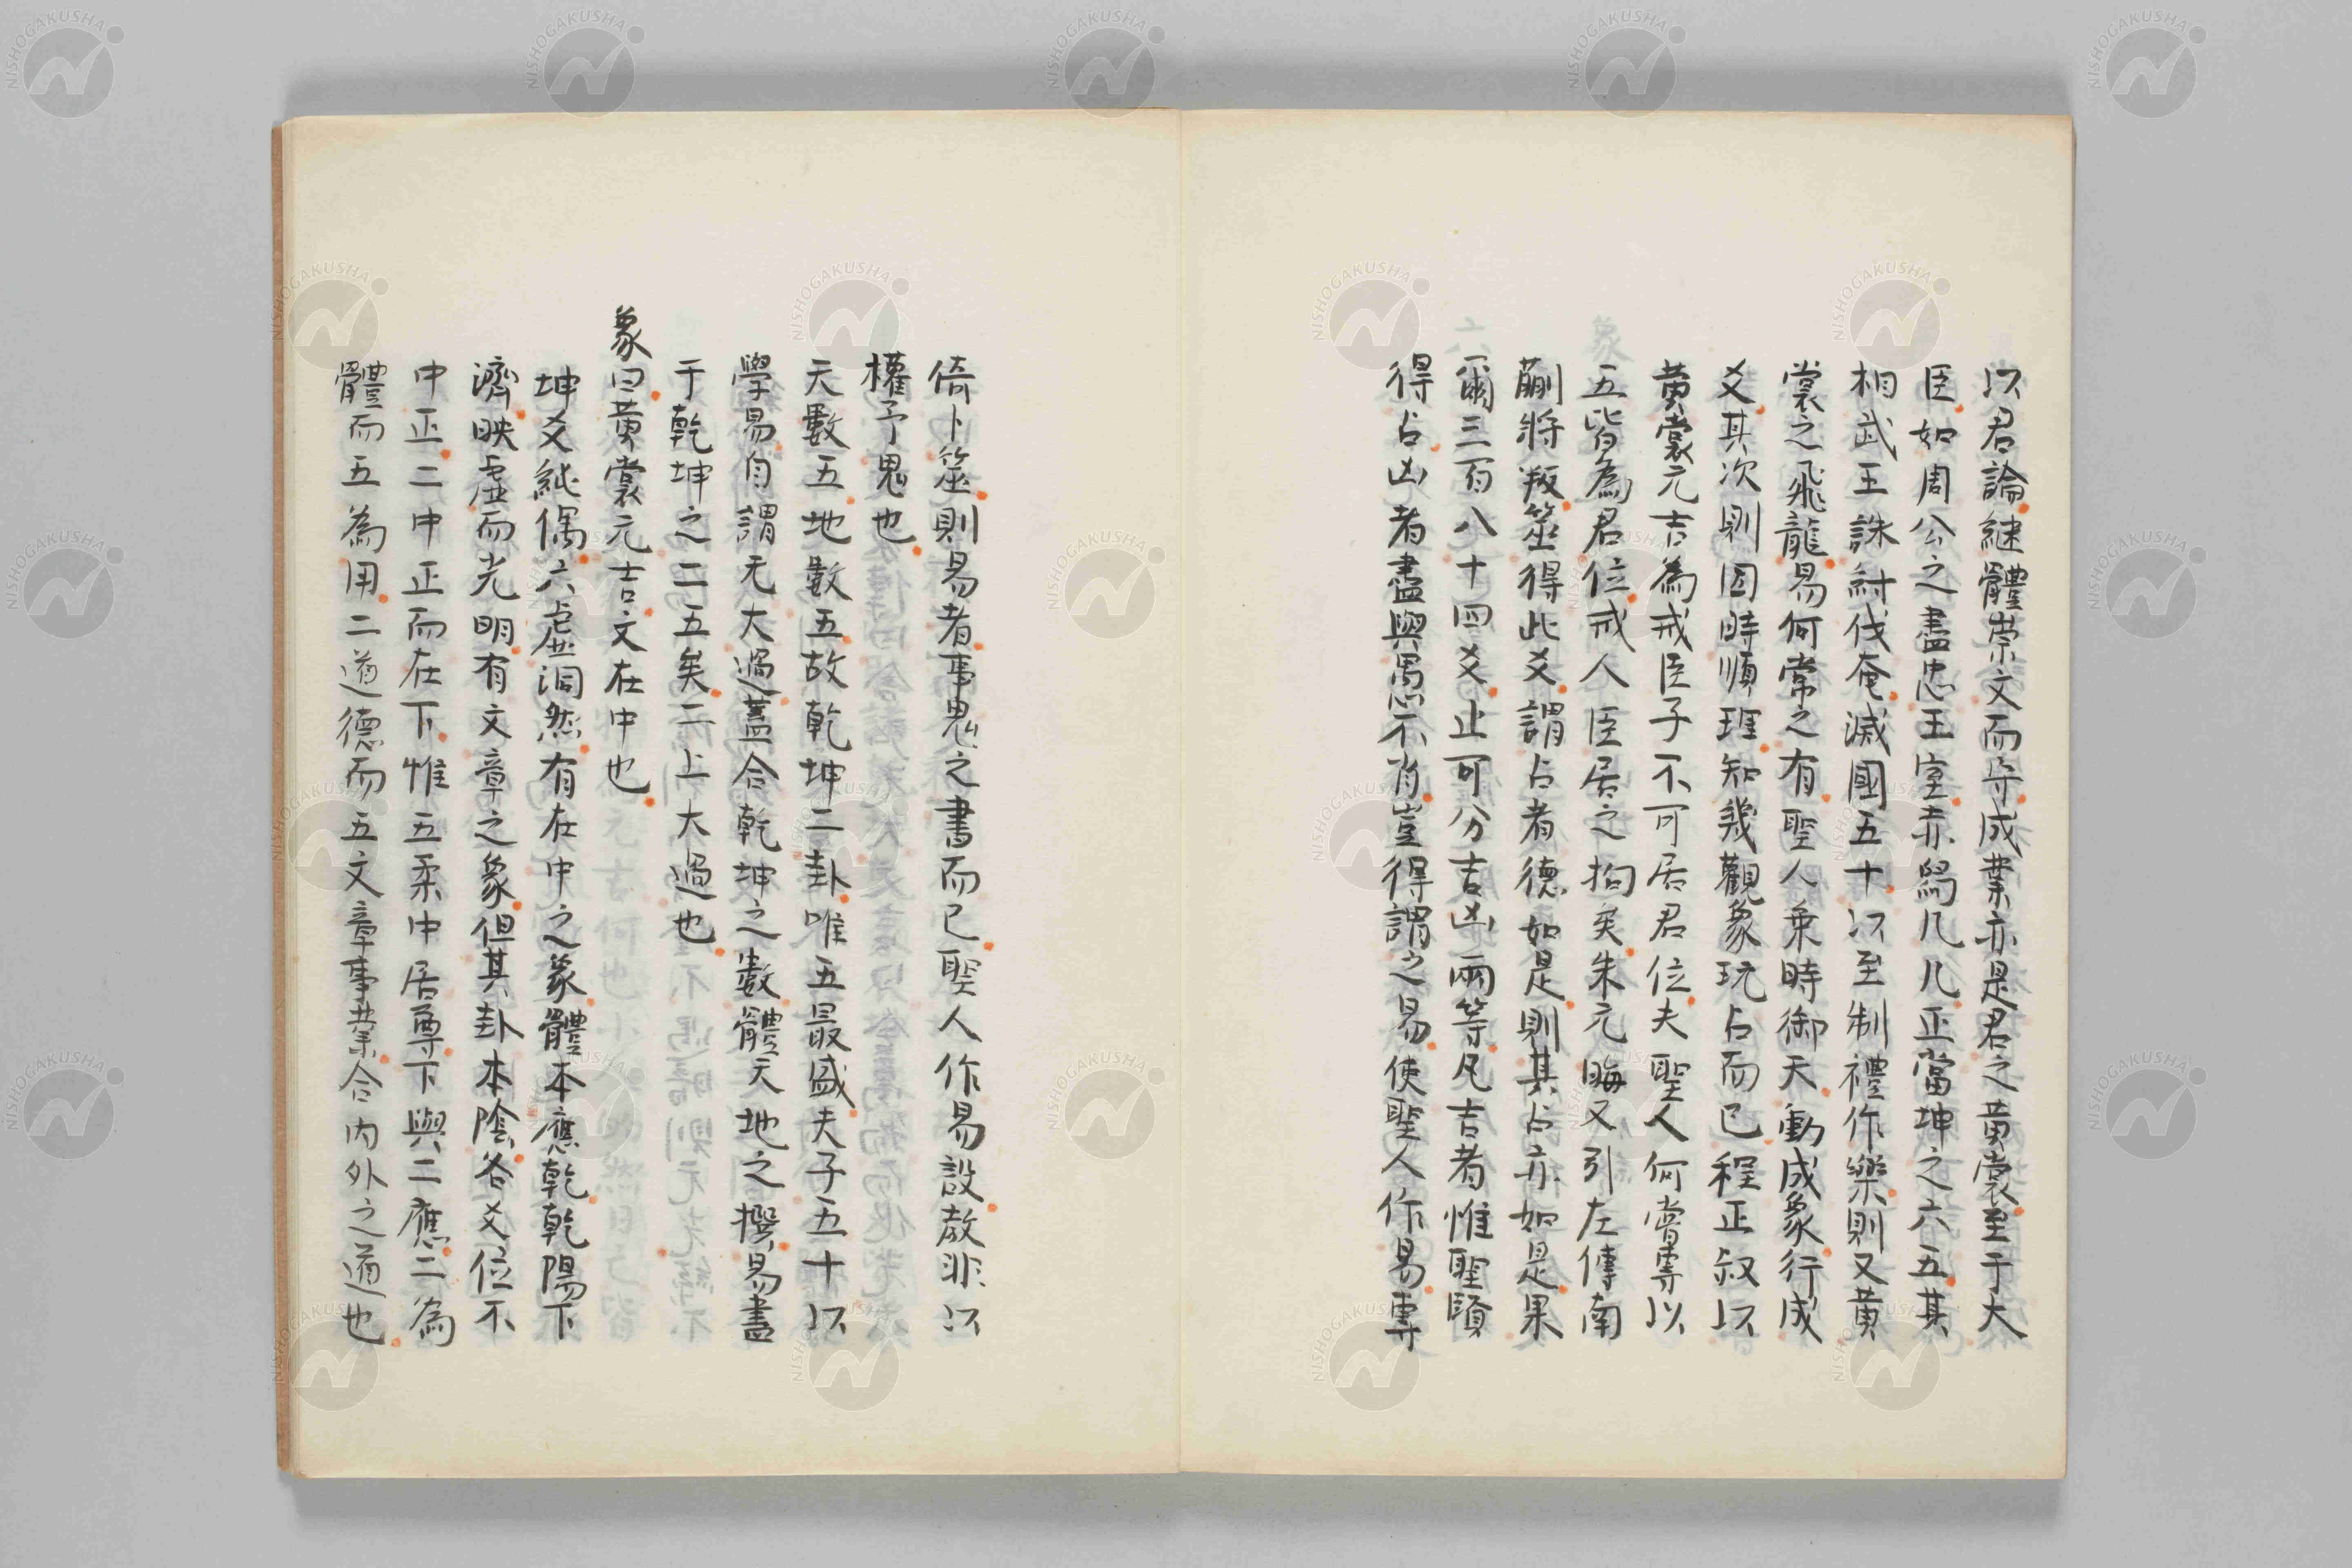 以君論繼體崇文而守成業亦是君之黃裳至于大
臣如周公之盡忠王室赤舃几几正當坤之六五其
相武王誅紂伐奄滅國五十以至制禮作樂則又黃
裳之飛龍易何常之有聖人乘時御天動成象行成
爻其次則因時順理知幾觀象玩占而已程正叔以
黃裳元吉為戒臣子不可居君位夫聖人何嘗專以
五皆為君位戒人臣居之拘矣朱元晦又引左傳南
蒯將叛筮得此爻謂占者德如是則其占亦如是果
爾三百八十四爻止可分吉凶兩等凡吉者惟聖賢
得占凶者盡與愚不肖豈得謂之易使聖人作易專
倚卜筮則易者事鬼之書而已聖人作易設教非以
權予鬼也
天數五地數五故乾坤二卦唯五最盛夫子五十以
學易自謂无大過蓋合乾坤之數體天地之撰易盡
于乾坤之二五矣二上大過也
象曰黃裳元吉文在中也
坤爻純偶六虛洞然有在中之象體本應乾乾陽下
濟映虛而光明有文章之象但其卦本陰各爻位不
中正二中正而在下惟五柔中居尊下與二應二為
體而五為用二道德而五文章事業合內外之道也
NISHOGAKUSHA